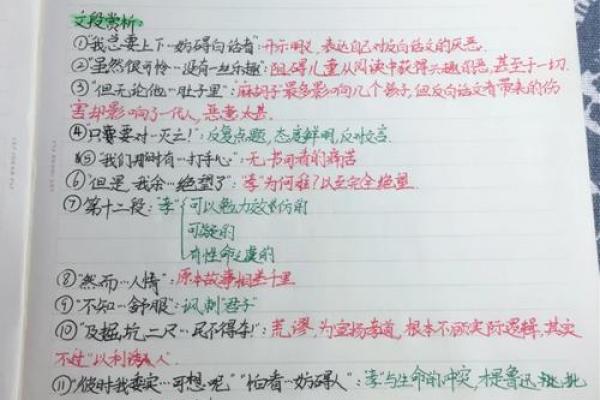 文段赏析:
①"我总要上下…妨碍白话者":开示明义,表达自己对反白话文的厌恶.
②"虽然很可怜…没有一丝乐趣":阻碍儿童从阅读中获得兴趣,可恶,甚至于一切.
③"但无论他…肚子里":麻胡子最多影响几个孩子,但反白话文者带来的伤
害却影响了一代人,恶毒太甚.
④"只要要对…灭亡!":反复点题,态度鲜明,反对文言.
⑤"我们那时有…打手心":无书可看的痛苦
⑥"但是,我余…绝望了":"孝"为何难?以至完全绝望.
⑦第十二段:"孝"
可以勉力效仿的
可疑的
有性命之虞的
⑧"然而…人情":原本故事相差千里
⑨"不知…舒服":讽刺"君子"
⑩"及掘坑二尺…民不得夺":荒谬,为宣扬孝道,根本不顾实际逻辑,其实
不过"以利诱人"
⑪"彼时我委实…可想呢""怕看…妨碍人":"孝"与生命的冲突,才是鲁迅批